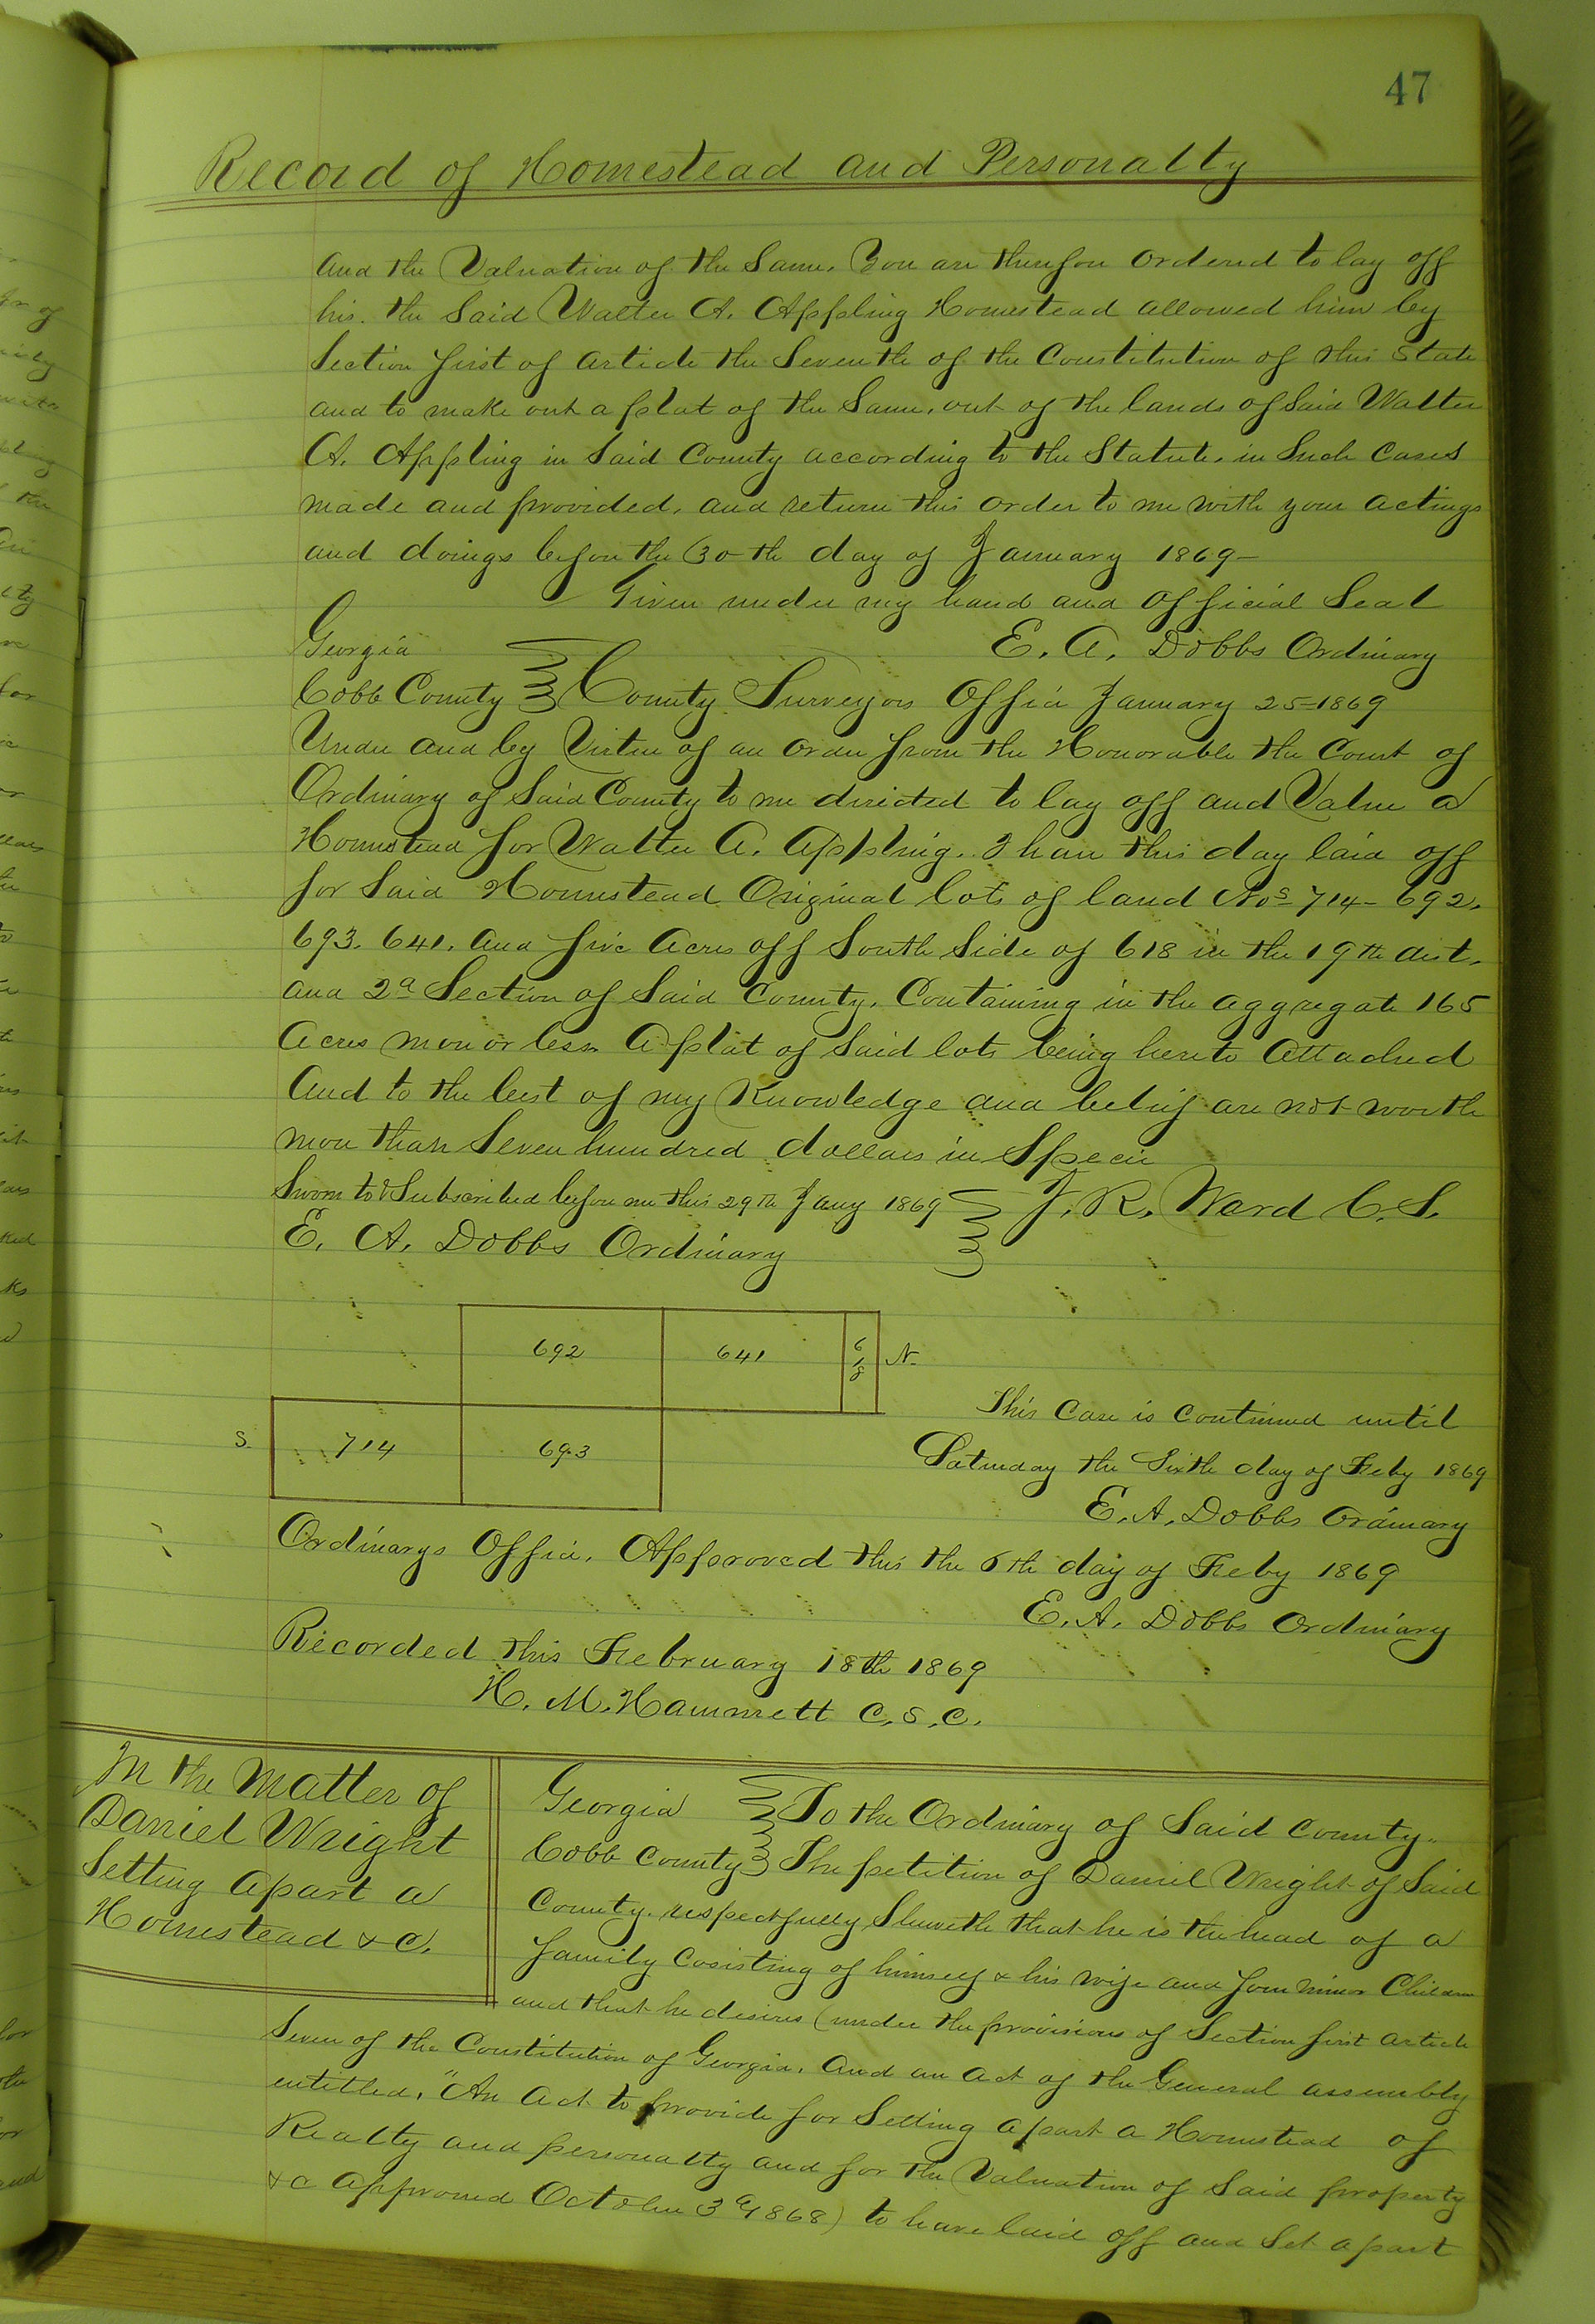 47
Record of Homestead and Personalty
and the Valuation of the Same. You are therefore ordered to lay off
his the Said Walter A. Appling Homestead allowed him by
Section first of article the Seventh of the Constitution of this State
and to make out a plat of the Same, out of the lands of Said Walter
A. Appling in Said County according to the Statute, in Such Cases
made and provided, and return this order to me with your actings
and doings before the 30th day of January 1869—
Given under my hand and official Seal
E. A. Dobbs Ordinary
Georgia
Cobb County County Surveyors Office January 25-1869
Under and by Virtue of an order from the Honorable the Court of
Ordinary of Said County to me directed to lay off and Value a
Homestead for Walter A. Appling. I have this day laid off
for Said Homestead Original lots of land Nos 714- 692.
693. 641. and five Acres off South Side of 618 in the 19th dist.
and 2d Section of Said County. Containing in the aggregate 165
Acres more or less A plat of Said lots being hereto Attached
And to the best of my Knowledge and belief are not worth
more than Seven hundred dollars in Specie
Sworn to & Subscribed before me this 29th Jany 1869 J. R. Ward C.S.
E. A. Dobbs Ordinary
692 641 618 N.
S. 714 693
This Case is Continued until
Saturday the Sixth day of Feby 1869
E. A. Dobbs Ordinary
Ordinarys Office. Approved this the 6th day of Feby 1869
E. A. Dobbs Ordinary
Recorded this February 18th 1869
H. M. Hammett C.S.C.
In the Matter of
Daniel Wright
Setting apart a
Homestead &c.
Georgia To the Ordinary of Said County.
Cobb County The petition of Daniel Wright of Said
County. respectfully Sheweth that he is the head of a
family Cosisting of himself & his wife and four minor Children
and that he desires (under the provisions of Section first article
Seven of the Constitution of Georgia. And an act of the General assembly
entitled, "An Act to provide for Setting apart a Homestead of
Realty and personalty and for the Valuation of Said property
&c approved October 3d 1868) to have laid off and Set apart